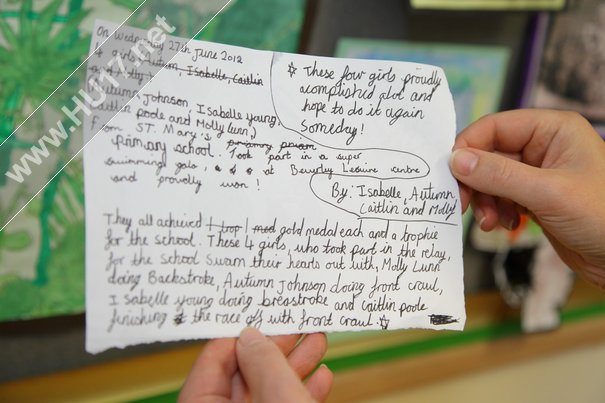 On Wednesday 27th June 2012
4 girls, Autumn, Isabelle, Caitlin
and Molly
Autumn Johnson, Isabelle young,
Caitlin poole and Molly Lunn,
from ST. Mary's
primary school. Took part in a super
swimming gala, at Beverley Leisure centre
and proudly won!
They all achieved 1 trop 1 med gold medal each and a trophie
for the school. These 4 girls, who took part in the relay,
for the school swam their hearts out with, Molly Lunn
doing Backstroke, Autumn Johnson doing front crawl,
Isabelle young doing breastroke and caitlin poole
finishing the race off with front crawl.
These four girls proudly
acomplished alot and
hope to do it again
Someday!
By: Isabelle, Autumn,
Caitlin and Molly!
www.HU17.net